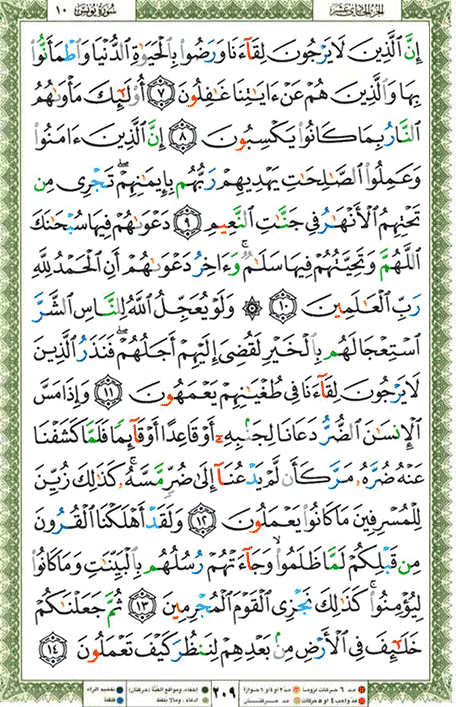 الجزء الحادي عشر سورة يونس ١٠
إِنَّ ٱلَّذِينَ لَا يَرْجُونَ لِقَآءَنَا وَرَضُوا۟ بِٱلْحَيَوٰةِ ٱلدُّنْيَا وَٱطْمَأَنُّوا۟
بِهَا وَٱلَّذِينَ هُمْ عَنْ ءَايَـٰتِنَا غَـٰفِلُونَ ٧ أُو۟لَـٰٓئِكَ مَأْوَىٰهُمُ
ٱلنَّارُ بِمَا كَانُوا۟ يَكْسِبُونَ ٨ إِنَّ ٱلَّذِينَ ءَامَنُوا۟
وَعَمِلُوا۟ ٱلصَّـٰلِحَـٰتِ يَهْدِيهِمْ رَبُّهُم بِإِيمَـٰنِهِمْ ۖ تَجْرِى مِن
تَحْتِهِمُ ٱلْأَنْهَـٰرُ فِى جَنَّـٰتِ ٱلنَّعِيمِ ٩ دَعْوَىٰهُمْ فِيهَا سُبْحَـٰنَكَ
ٱللَّهُمَّ وَتَحِيَّتُهُمْ فِيهَا سَلَـٰمٌ ۚ وَءَاخِرُ دَعْوَىٰهُمْ أَنِ ٱلْحَمْدُ لِلَّهِ
رَبِّ ٱلْعَـٰلَمِينَ ١٠ ۞ وَلَوْ يُعَجِّلُ ٱللَّهُ لِلنَّاسِ ٱلشَّرَّ
ٱسْتِعْجَالَهُم بِٱلْخَيْرِ لَقُضِىَ إِلَيْهِمْ أَجَلُهُمْ ۖ فَنَذَرُ ٱلَّذِينَ
لَا يَرْجُونَ لِقَآءَنَا فِى طُغْيَـٰنِهِمْ يَعْمَهُونَ ١١ وَإِذَا مَسَّ
ٱلْإِنسَـٰنَ ٱلضُّرُّ دَعَانَا لِجَنۢبِهِۦٓ أَوْ قَاعِدًا أَوْ قَآئِمًا فَلَمَّا كَشَفْنَا
عَنْهُ ضُرَّهُۥ مَرَّ كَأَن لَّمْ يَدْعُنَآ إِلَىٰ ضُرٍّ مَّسَّهُۥ ۚ كَذَٰلِكَ زُيِّنَ
لِلْمُسْرِفِينَ مَا كَانُوا۟ يَعْمَلُونَ ١٢ وَلَقَدْ أَهْلَكْنَا ٱلْقُرُونَ
مِن قَبْلِكُمْ لَمَّا ظَلَمُوا۟ ۙ وَجَآءَتْهُمْ رُسُلُهُم بِٱلْبَيِّنَـٰتِ وَمَا كَانُوا۟
لِيُؤْمِنُوا۟ ۚ كَذَٰلِكَ نَجْزِى ٱلْقَوْمَ ٱلْمُجْرِمِينَ ١٣ ثُمَّ جَعَلْنَـٰكُمْ
خَلَـٰٓئِفَ فِى ٱلْأَرْضِ مِنۢ بَعْدِهِمْ لِنَنظُرَ كَيْفَ تَعْمَلُونَ ١٤
مد ٦ حركات لزوما مد ٢ أو ٤ أو ٦ جوازا إخفاء، ومواقع الغنة (حركتان) تفخيم الراء
مد واجب ٤ أو ٥ حركات مد حركتان ٢٠٩ إدغام، وما لا يلفظ قلقلة